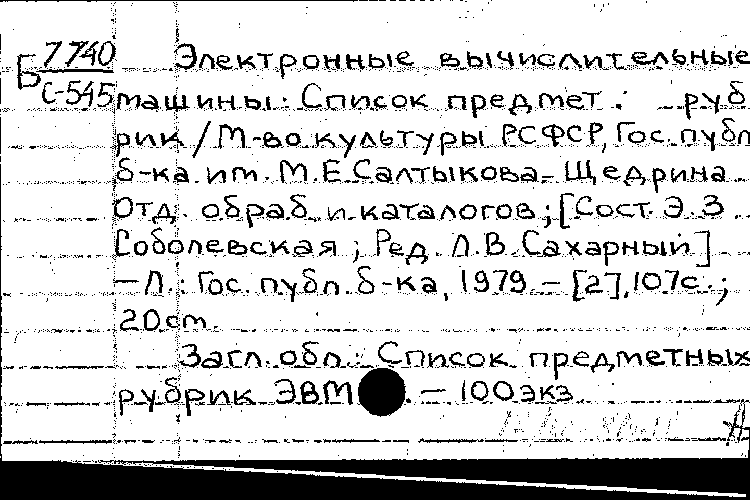 Б 7740 Электронные вычислительные
С-545 машины: Список предмет. руб
рик / М-во культуры РСФСР, Гос. публ
б-ка им. М.Е.Салтыкова-Щедрина
Отд. обраб. и каталогов; [Сост. Э.З
Соболевская; Ред. Л.В.Сахарный]
— Л.: Гос. публ. б-ка, 1979. — [2], 107с.;
20cm.
Загл. обл.: Список предметных
рубрик ЭВМ. — 100экз